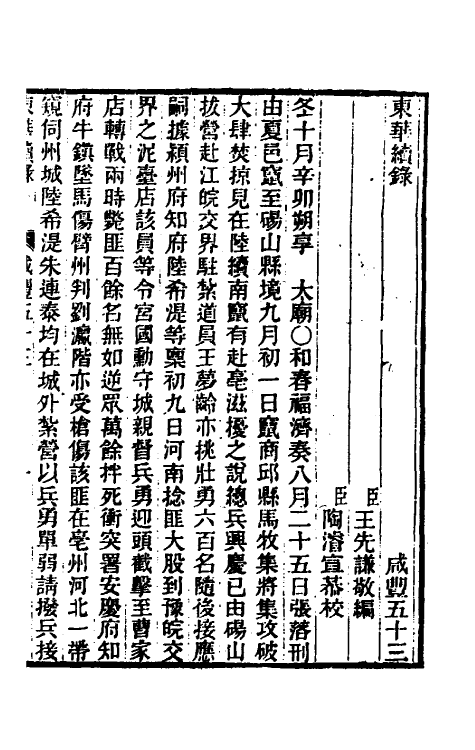 東華續錄　咸豐五十三
臣王先謙敬編
臣陶濬宣恭校
冬十月辛卯朔享　太廟〇和春福濟奏八月二十五日張落刑
由夏邑竄至碭山縣境九月初一日竄商邱縣馬牧集將集攻破
大肆焚掠見在陸續南竄有赴亳滋擾之說總兵興慶已由碭山
拔營赴江皖交界駐紮道員王夢齡亦挑壯勇六百名隨後接應
嗣據潁州府知府陸希湜等稟初九日河南捻匪大股到豫皖交
界之泥臺店該員等令宮國勳守城親督兵勇迎頭截擊至曹家
店轉戰兩時斃匪百餘名無如逆眾萬餘拌死衝突署安慶府知
府牛鎮墜馬傷臂州判劉瀛階亦受槍傷該匪在亳州河北一帶
窺伺州城陸希湜朱連泰均在城外紮營以兵勇單弱請撥兵接